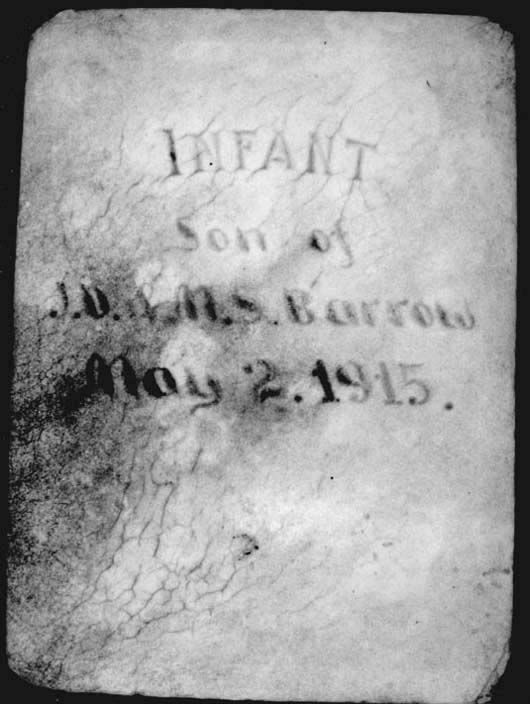 INFANT
son of
J.D. & M.S. Barrow
May 2. 1915.